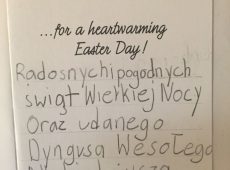 ...for a heartwarming
Easter Day!
Radosnych i pogodnych
świąt Wielkiej Nocy
Oraz udanego
Dyngusa Wesołego